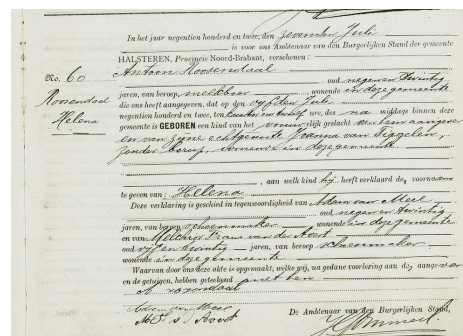 In het jaar negentien honderd en twee, den zevenden Juli
is voor ons Ambtenaar van den Burgerlijken Stand der gemeente
HALSTEREN, Provincie Noord-Brabant, verschenen:
No. 60
Roosendaal
Helena
Antoon Roosendaal
oud negen en twintig
jaren, van beroep, melkboer, wonende in deze gemeente
die ons heeft aangegeven, dat op den vijfden Juli
negentien honderd en twee, ten ure, des na middags binnen deze
gemeente is GEBOREN een kind van het vrouwelijk geslacht van hem aangever
en van zijne echtgenoote Joanna van Tiggelen,
zonder beroep, wonende in deze gemeente
, aan welk kind hij heeft verklaard de, voornaam
te geven van: Helena
Deze verklaring is geschied in tegenwoordigheid van Adam van Meel
oud negen en twintig
jaren, van beroep schoenmaker wonende in deze gemeente
en van Melchior van der Avort
oud vijf en twintig jaren, van beroep schoenmaker
wonende in deze gemeente
Waarvan door ons deze akte is opgemaakt, welke wij, na gedane voorlezing aan de, aangever
en de getuigen, hebben geteekend met hen
A roosendaal
Adam van Meel
De Ambtenaar van den Burgerlijken Stand,
M. F. v. d. Avort